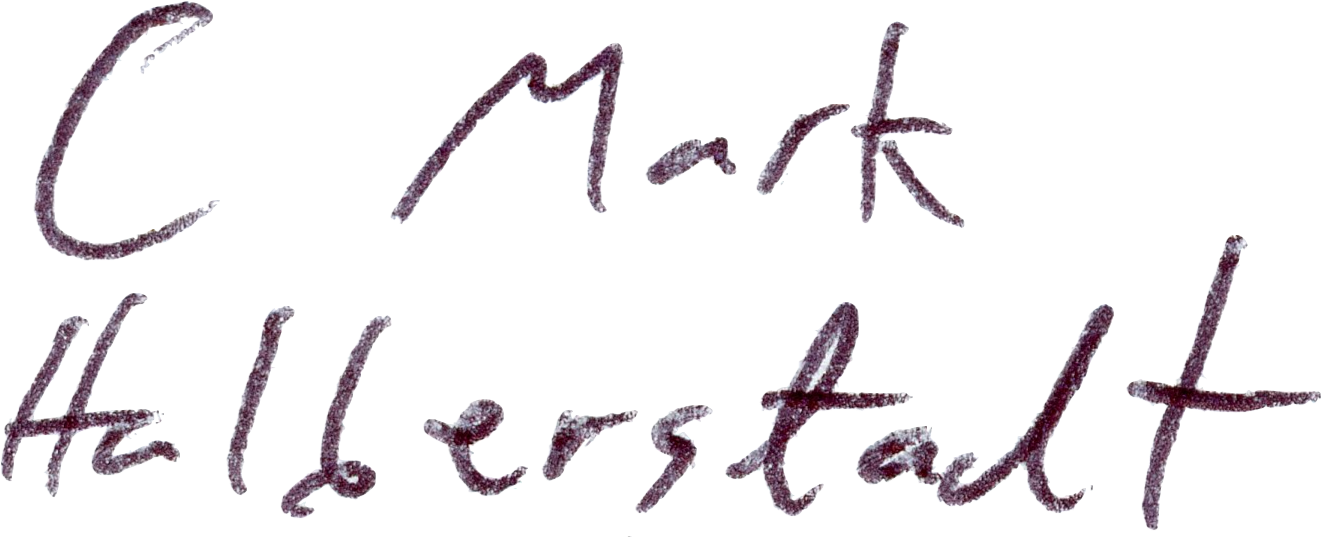 C Mark
Halberstadt